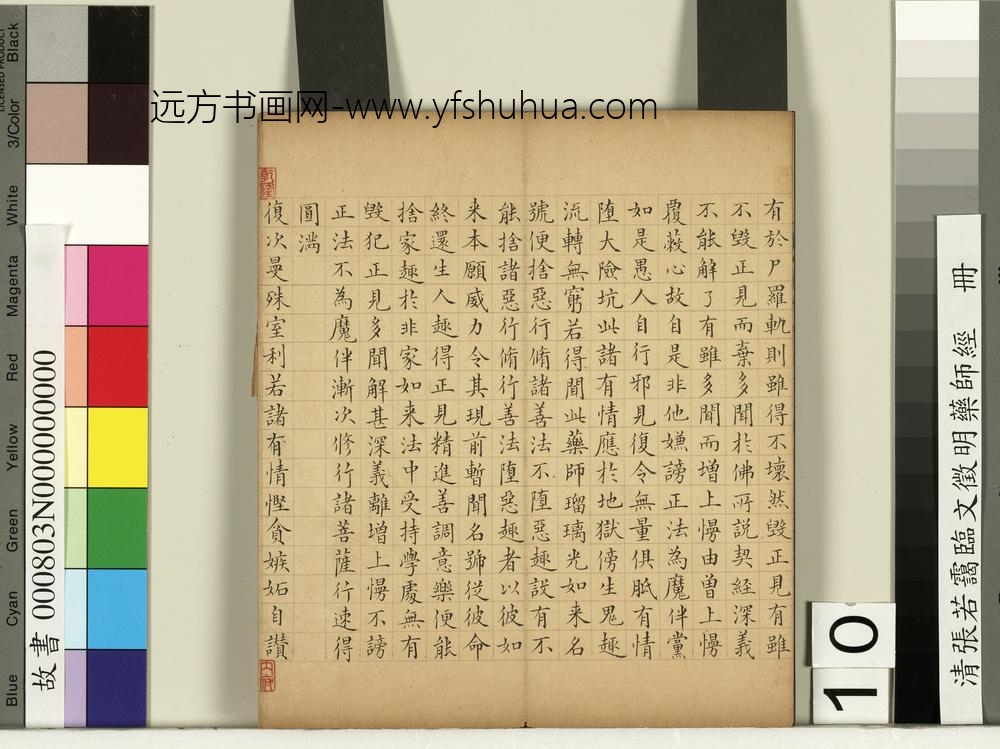 远方书画网-www.yfshuhua.com
有於尸羅軌則雖得不壞然毀正見有雖
不毀正見而棄多聞於佛所說契經深義
不能解了有雖多聞而增上慢由曾上慢
覆蔽心故自是非他嫌謗正法為魔伴黨
如是愚人自行邪見復令無量俱胝有情
墮大險坑此諸有情應於地獄傍生鬼趣
流轉無窮若得聞此藥師瑠璃光如来名
號便捨惡行脩諸善法不墮惡趣設有不
能捨諸惡行脩行善法墮惡趣者以彼如
来本願威力令其現前暫聞名號從彼命
終還生人趣得正見精進善調意樂便能
捨家趣於非家如来法中受持學處無有
毀犯正見多聞解甚深義離增上慢不謗
正法不為魔伴漸次修行諸菩薩行速得
圓滿
復次曼殊室利若諸有情慳貪嫉妬自讃
乾隆
清張若靄臨文徵明藥師經 冊
10
故書 000803N000000000
LICENSED PRODUCT
Black
3/Color
White
Magenta
Red
Yellow
Green
Cyan
Blue